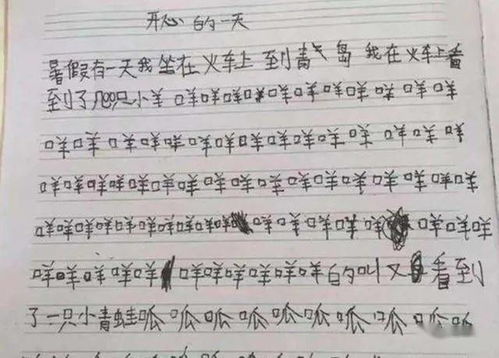 开心的一天
暑假有一天我坐在火车上到青岛我在火车上看
到了几只小羊咩咩咩咩咩咩咩咩咩咩咩
咩咩咩咩咩咩咩咩咩咩咩咩咩咩
咩咩咩咩咩咩咩咩咩咩咩咩咩咩咩咩
咩咩咩咩咩咩咩咩咩咩咩咩咩咩咩咩咩
咩咩咩咩咩咩咩咩咩咩的叫又看到
了一只小青蛙呱呱呱呱呱呱呱呱呱呱